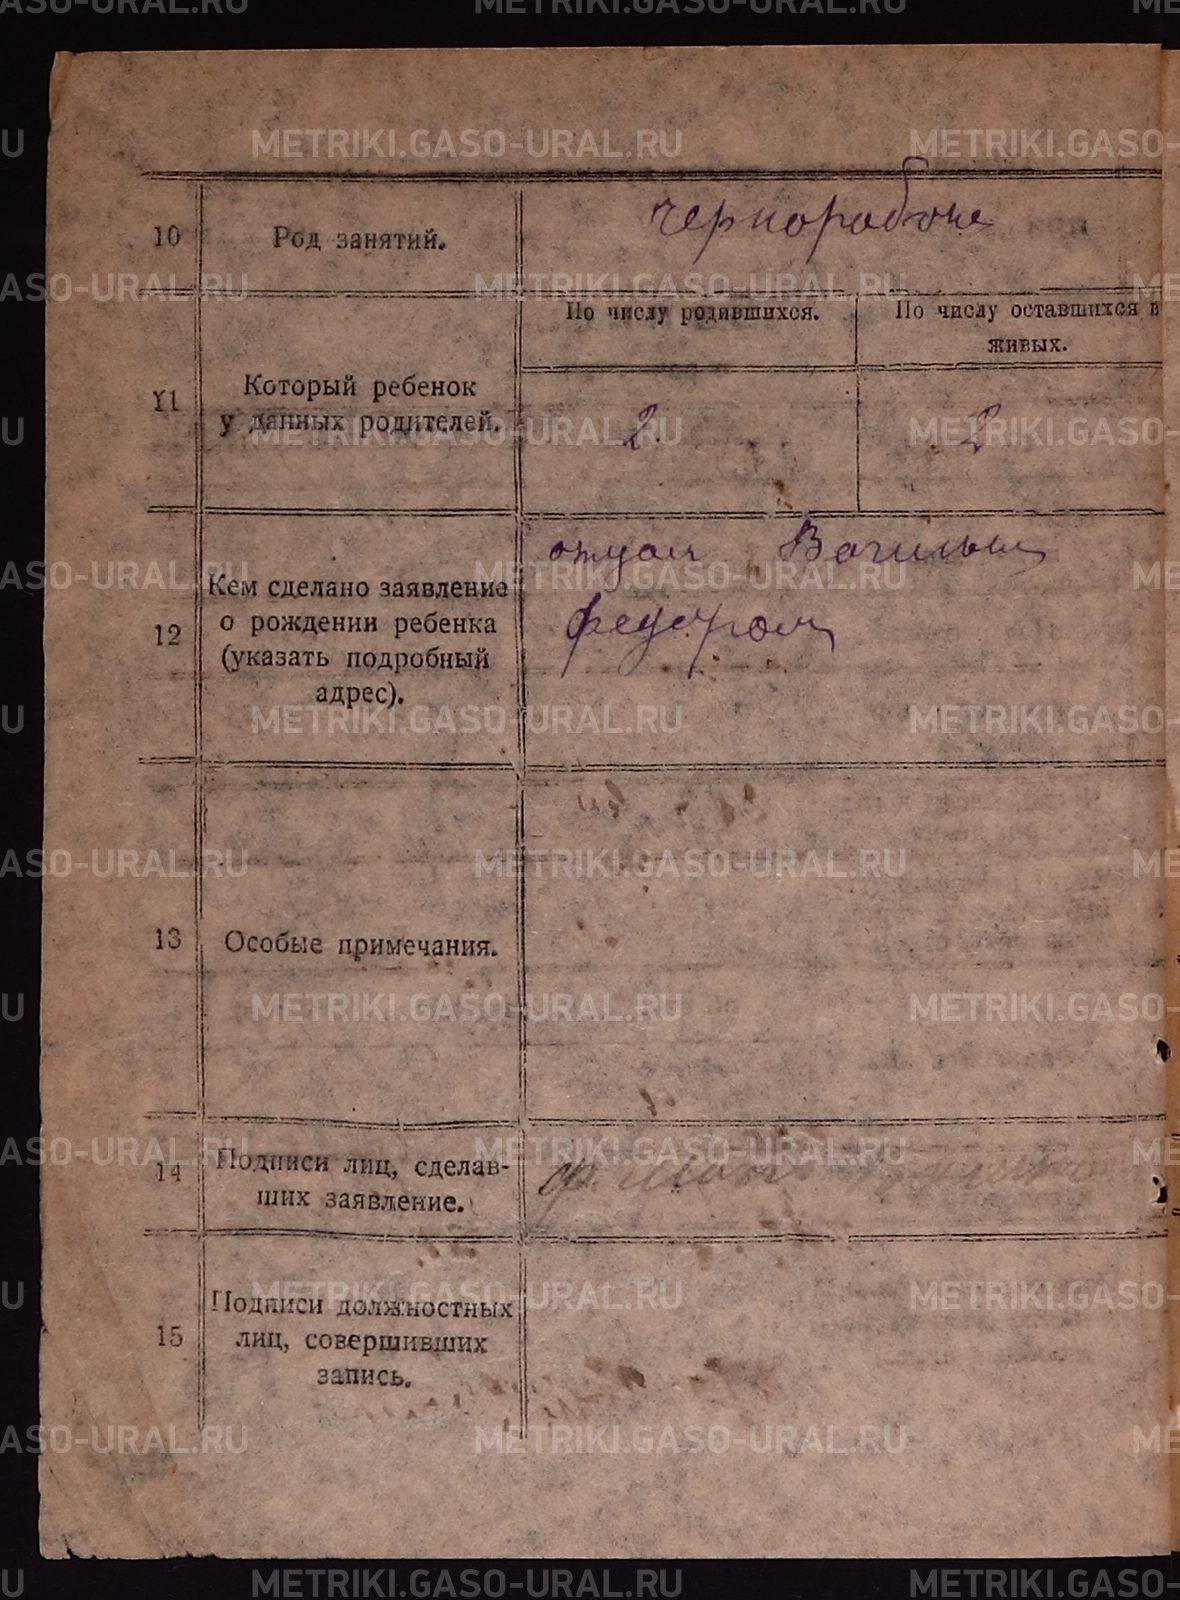 METRIKI.GASO-URAL.RU
10 Род занятий. чернорабоче
По числу родившихся. По числу оставшихся в живых.
11 Который ребенок
у данных родителей. 2. 2
12 Кем сделано заявление
о рождении ребенка
(указать подробный
адрес).
отцом
Федором
13 Особые примечания.
14 Подписи лиц, сделав-
ших заявление.
15 Подписи должностных
лиц, совершивших
запись.